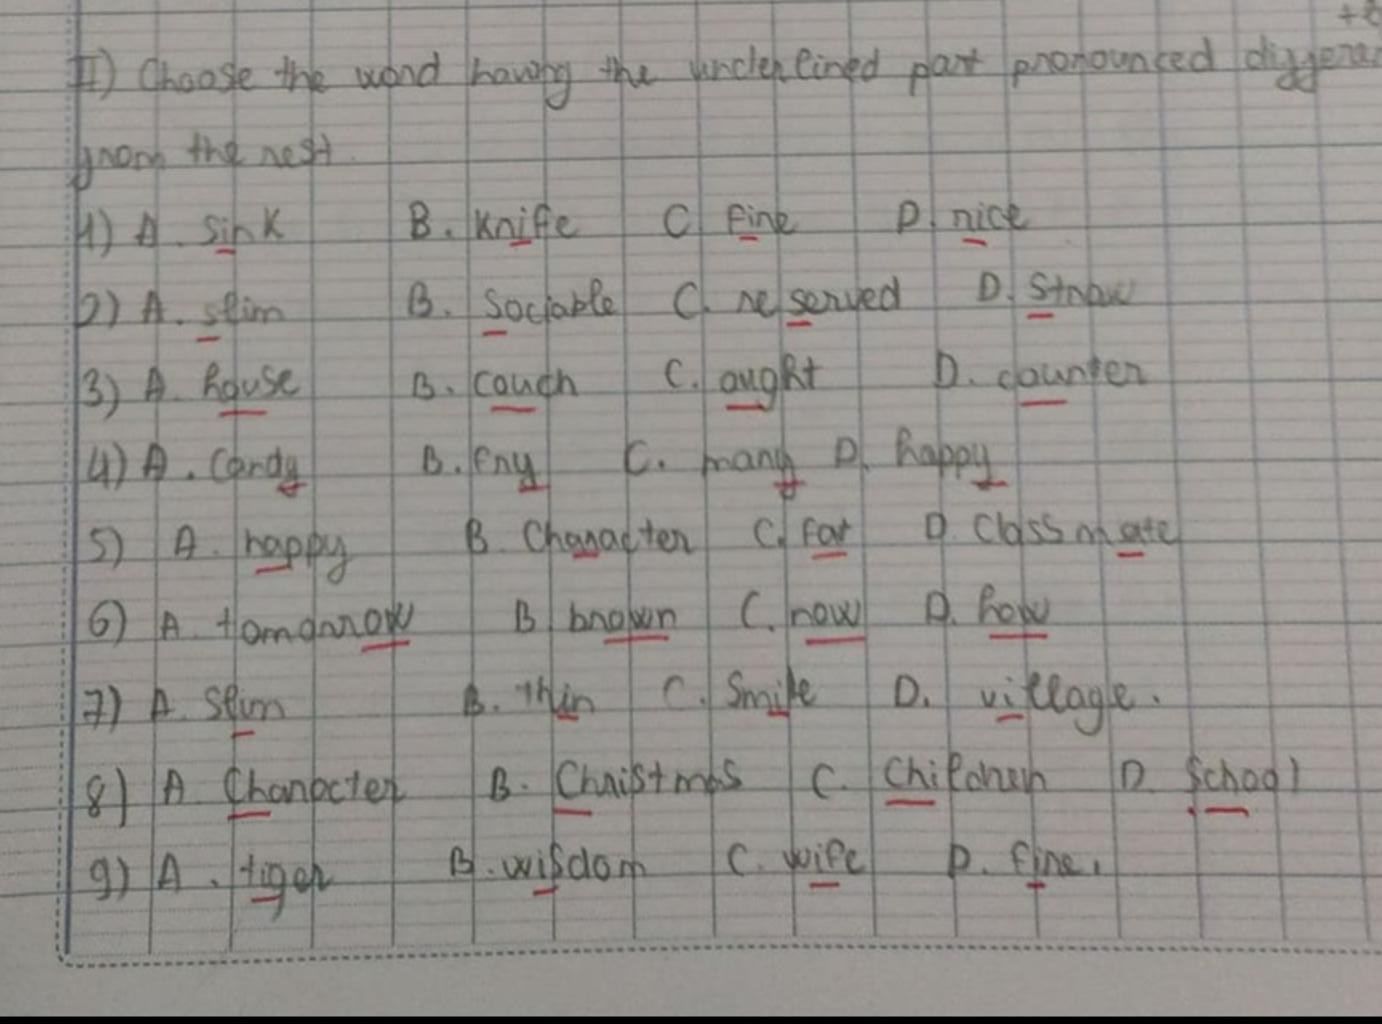 II) Choose the word having the underlined part pronounced differen
from the rest.
1) A. sink B. knife C. fine D. nice
2) A. slim B. sociable C. reserved D. straw
3) A. house B. couch C. ought D. counter
4) A. Candy B. fry C. many D. happy
5) A. happy B. Character C. fat D. Classmate
6) A. tomorrow B. brown C. now D. how
7) A. Slim B. thin C. Smile D. village.
8) A. Character B. Christmas C. Children D. School
9) A. tiger B. wisdom C. wife D. fine.